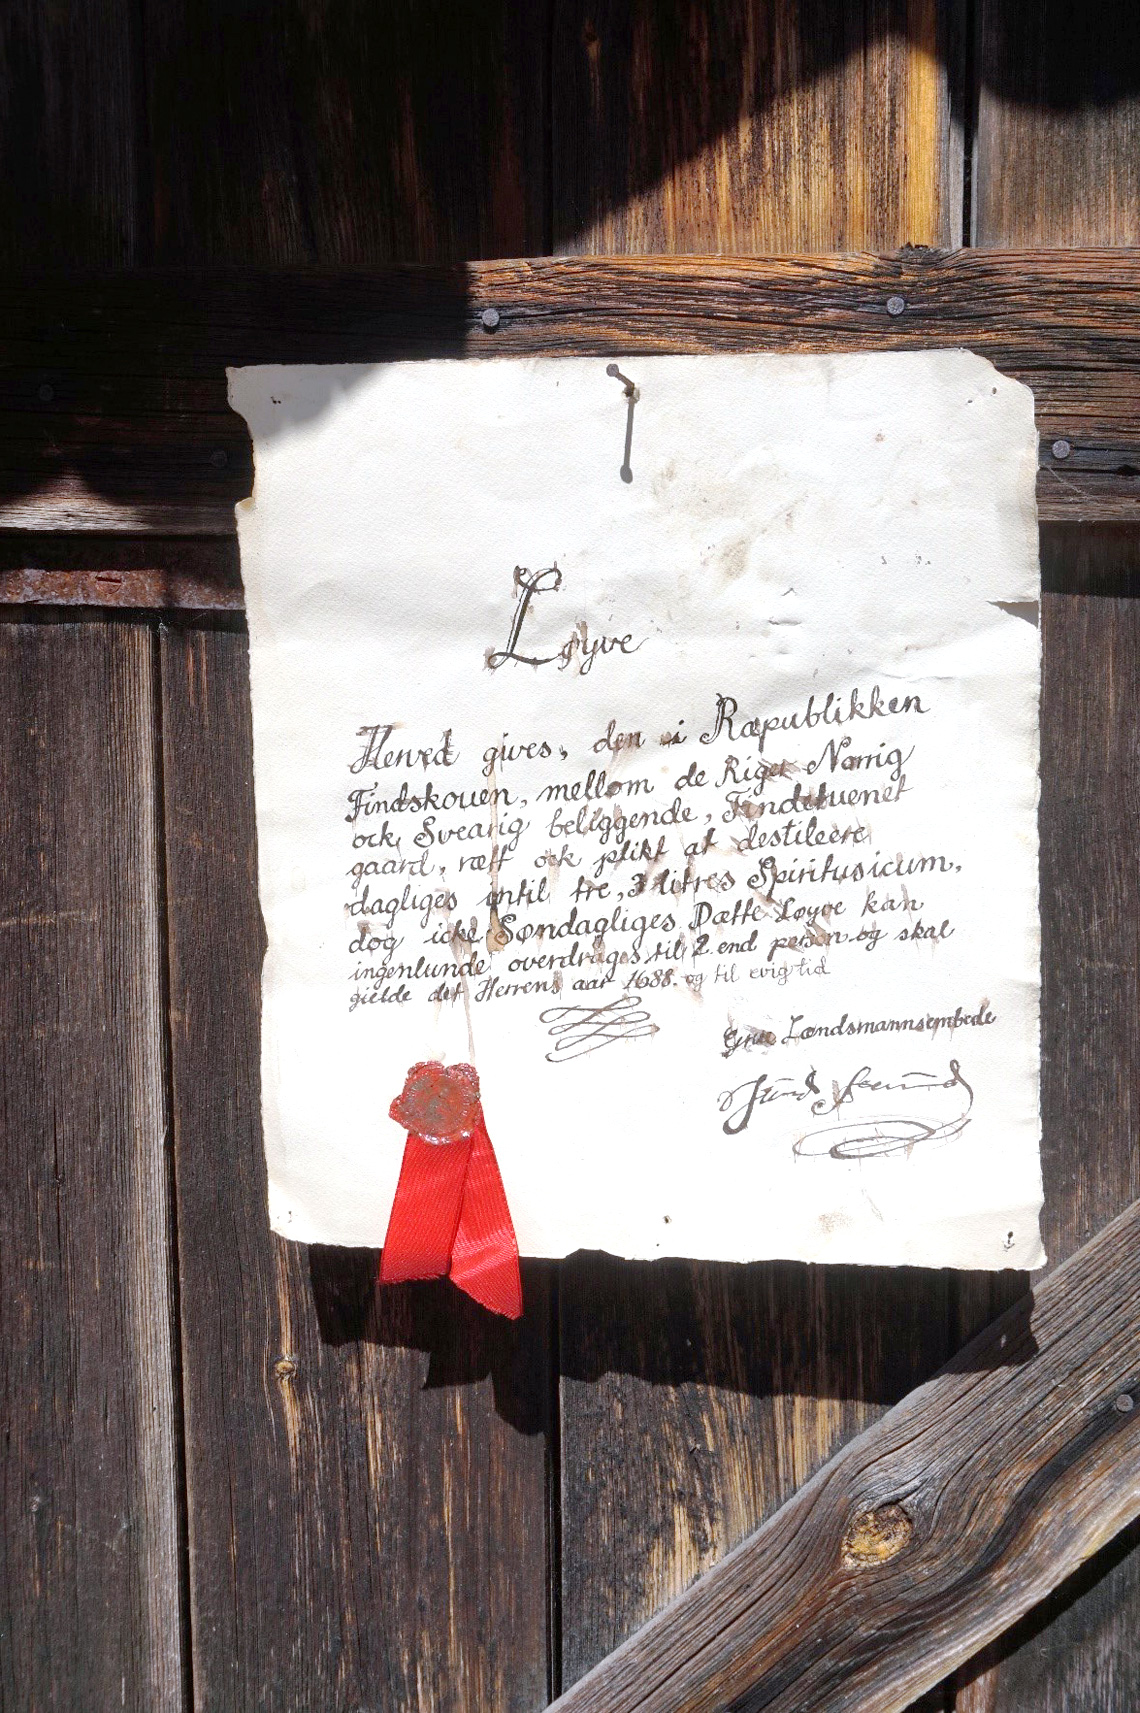 Løyve
Herved gives, den i Ræpublikken
Findskouen, mellom de Riger Nørrig
ock Svearig beliggende, Findetuenet
gaard, rætt ock plikt at destileere
dagliges intil tre, 3 litres Spiritusicum,
dog icke Søndagliges Dætte Løyve kan
ingenlunde overdrages til 2. end person og skal
gielde det Herrens aar 1688. og til evig tid
Grue Lændsmannsembede